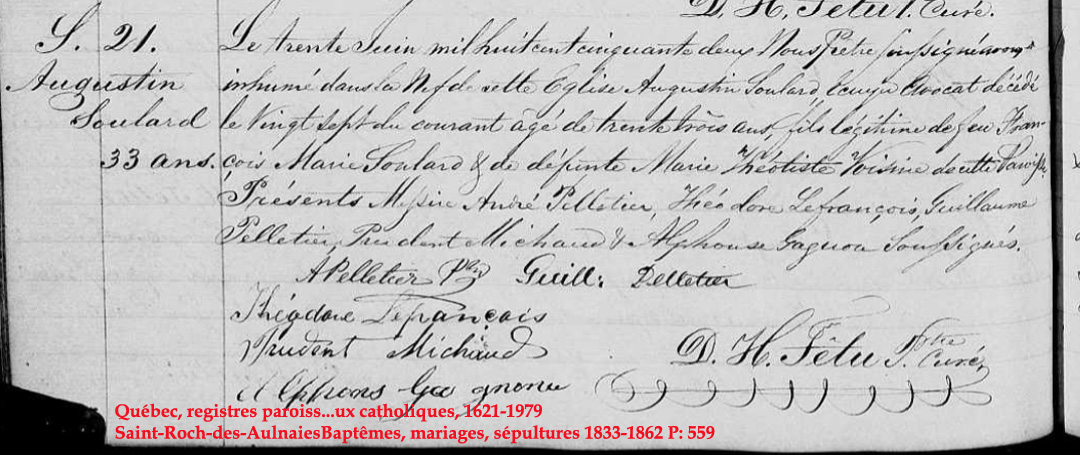 D. H. Têtu P. Curé.
S. 21.
Augustin
Soulard
33 ans.
Le trente Juin mil huit cent cinquante deux Nous Prêtre soussigné avons
inhumé dans la Nef de cette Eglise Augustin Soulard, Ecuyer Avocat décédé
le Vingt sept du courant agé de trente trois ans, fils légitime de feu Fran-
çois Marie Soulard & de défunte Marie Théotiste Voisine de cette Paroisse
Présents Messire André Pelletier, Théodore Lefrançois, Guillaume
Pelletier, Prudent Michaud & Alphonse Gagnon Soussignés.
A Pelletier Ptre Guill: Pelletier
Théodore Lefrançois
Prudent Michaud
D. H. Têtu Ptre Curé
Alphons Ga gnone
Québec, registres paroiss...ux catholiques, 1621-1979
Saint-Roch-des-AulnaiesBaptêmes, mariages, sépultures 1833-1862 P: 559